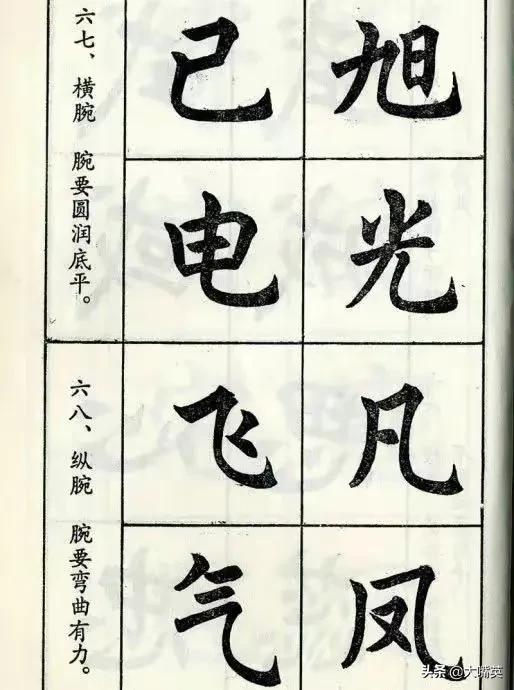 六七、横腕 腕要圆润底平。
旭 已
光 电
六八、纵腕 腕要弯曲有力。
凡 飞
凤 气
头条 @大嘴英